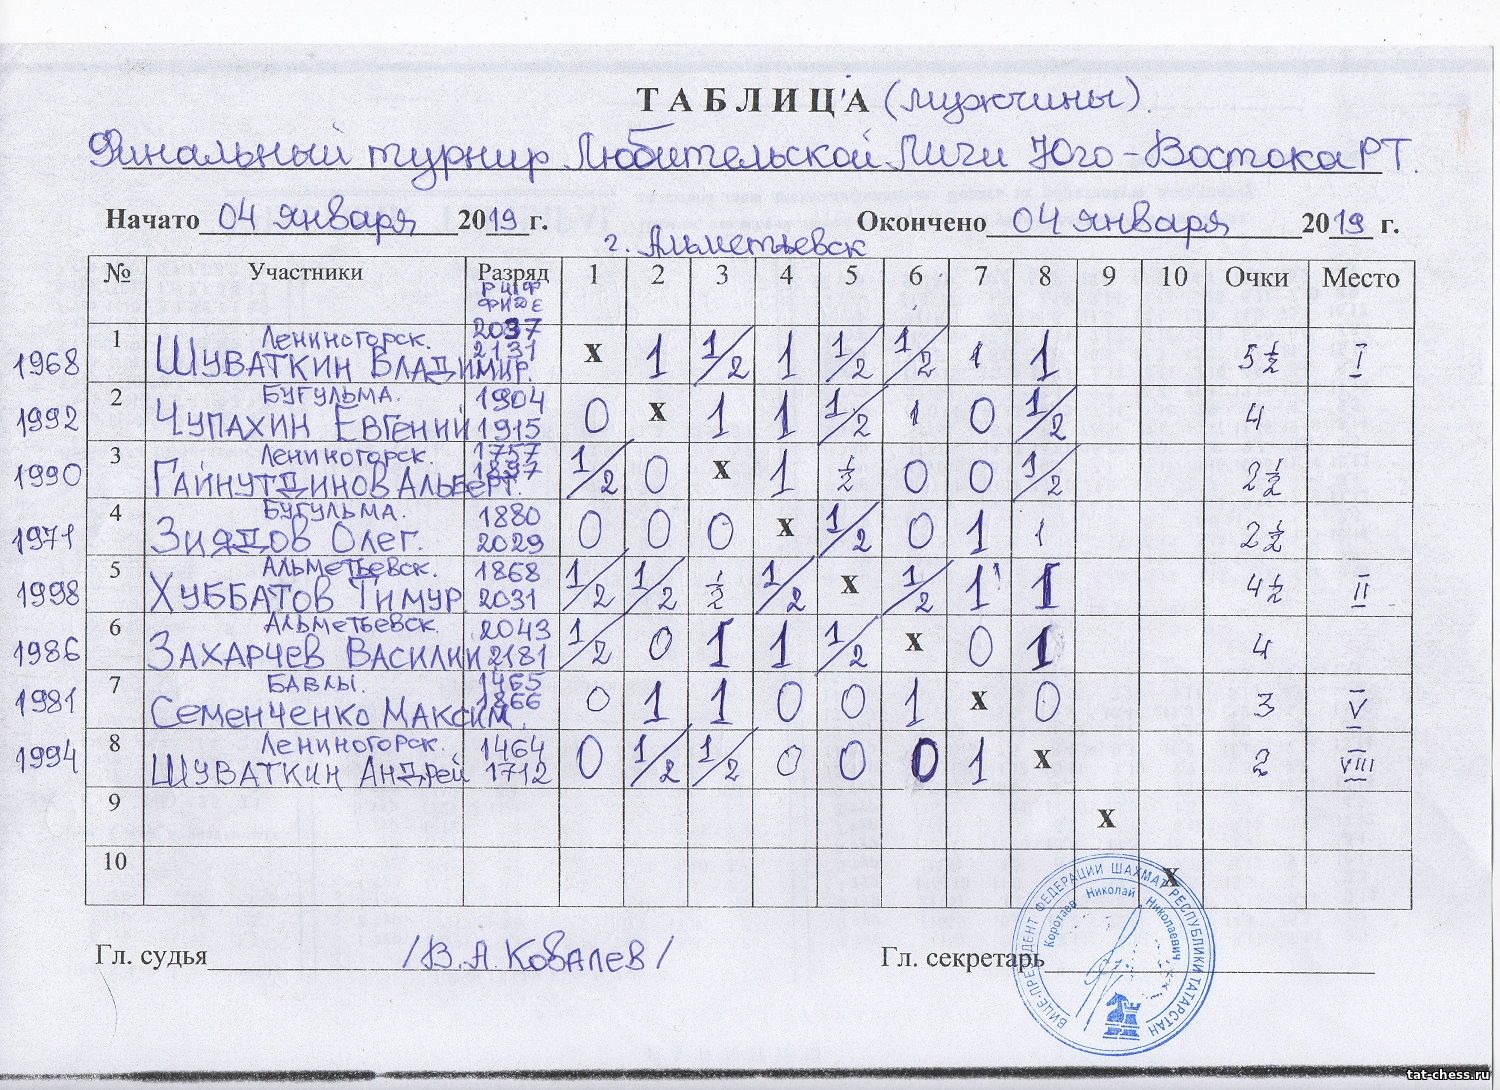 ТАБЛИЦА (мужчины).
Финальный турнир Любительской Лиги Юго-Востока РТ.
Начато 04 января 2019 г. Окончено 04 января 2019 г.
г. Альметьевск
№ Участники Разряд 1 2 3 4 5 6 7 8 9 10 Очки Место
РШФ
ФИДЕ
1968 1 Лениногорск. 2097
ШУВАТКИН ВЛАДИМИР. 2131 x 1 1/2 1 1/2 1/2 1 1 5 1/2 I
1992 2 БУГУЛЬМА. 1904
ЧУПАХИН ЕВГЕНИЙ 1915 0 x 1 1 1/2 1 0 1/2 4
1990 3 Лениногорск. 1757
ГАЙНУТДИНОВ АЛЬБЕРТ. 1897 1/2 0 x 1 1/2 0 0 1/2 2 1/2
1971 4 БУГУЛЬМА. 1880
ЗИЯДОВ ОЛЕГ. 2029 0 0 0 x 1/2 0 1 1 2 1/2
1998 5 Альметьевск. 1868
ХУББАТОВ ТИМУР 2031 1/2 1/2 1/2 1/2 x 1/2 1 1 4 1/2 II
1986 6 Альметьевск. 2043
ЗАХАРЧЕВ ВАСИЛИЙ 2181 1/2 0 1 1 1/2 x 0 1 4
1981 7 БАВЛЫ. 1465
СЕМЕНЧЕНКО МАКСИМ. 1866 0 1 1 0 0 1 x 0 3 V
1994 8 Лениногорск. 1464
ШУВАТКИН АНДРЕЙ 1712 0 1/2 1/2 0 0 0 1 x 2 VIII
9 x
10 x
Гл. судья /В.А Ковалев/ Гл. секретарь
ВИЦЕ-ПРЕЗИДЕНТ ФЕДЕРАЦИИ ШАХМАТ РЕСПУБЛИКИ ТАТАРСТАН
Коротаев Николай Николаевич
tat-chess.ru